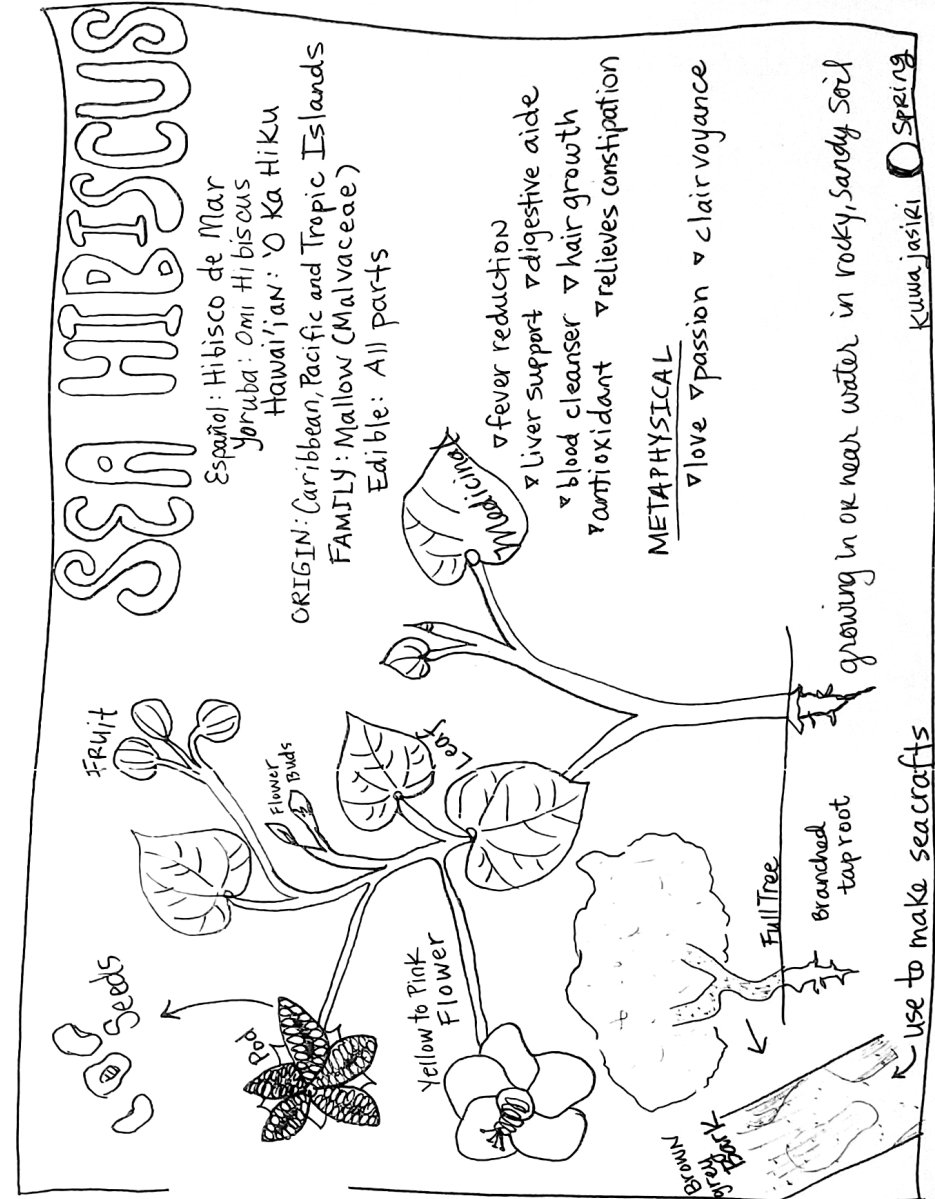 SEA HIBISCUS
Español: Hibisco de Mar
Yoruba: Omi Hibiscus
Hawai'ian: 'O Ka Hiku
ORIGIN: Caribbean, Pacific and Tropic Islands
FAMILY: Mallow (Malvaceae)
Edible: All parts
Medicinal
▿fever reduction
▿Liver support ▿digestive aide
▿blood cleanser ▿hair growth
▿antioxidant ▿relieves constipation
METAPHYSICAL
▿love ▿passion ▿clairvoyance
growing in or near water in rocky, Sandy Soil
FRUIT
Flower
Buds
Leaf
Seeds
Pod
Yellow to Pink
Flower
Full Tree
Branched
taproot
Brown
grey
Bark
use to make seacrafts
Kuwa jasiri
Spring